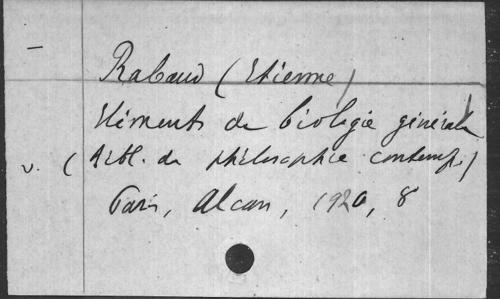 Rabaud (Etienne)
Eléments de biologie générale
v. (Bibl. de philosophie contemp.)
Paris, Alcan, 1920, 8